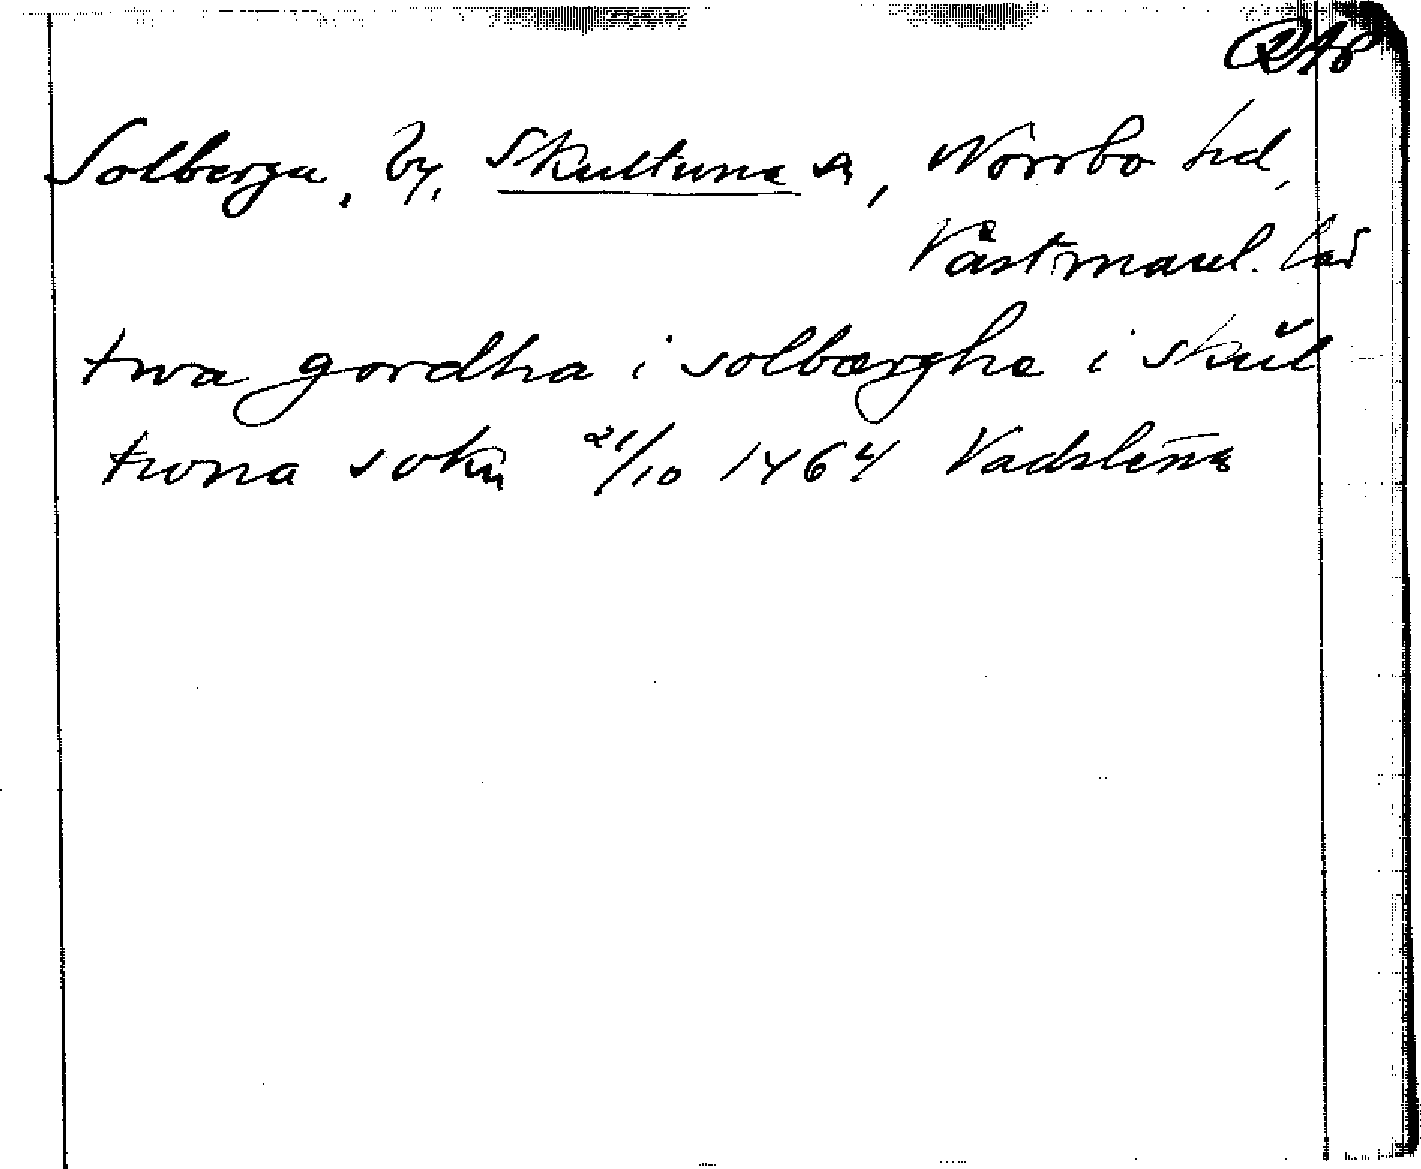 Solberga, by, Skultuna sn, Norrbo hd,
Västmanl. län
twa gordha i solbærghe i skŭl
twna sokn 21/10 1464 Vadstena